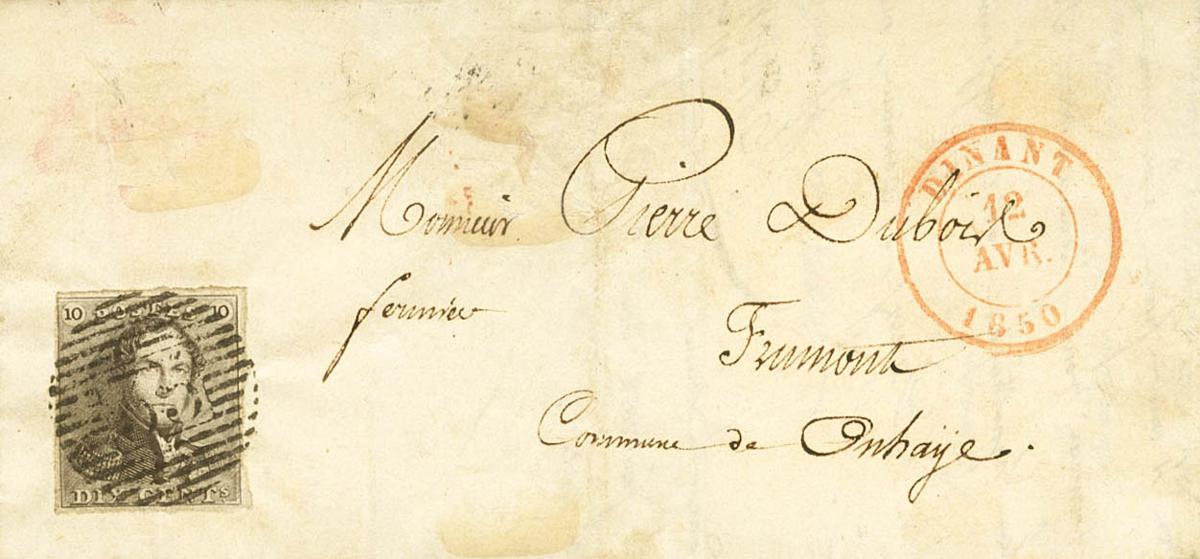 DINANT
12
AVR.
1850
Monsieur Pierre Dubois
fermier
Frumont
Commune de Onhaÿe.
10 POSTES 10
DIX CENTS